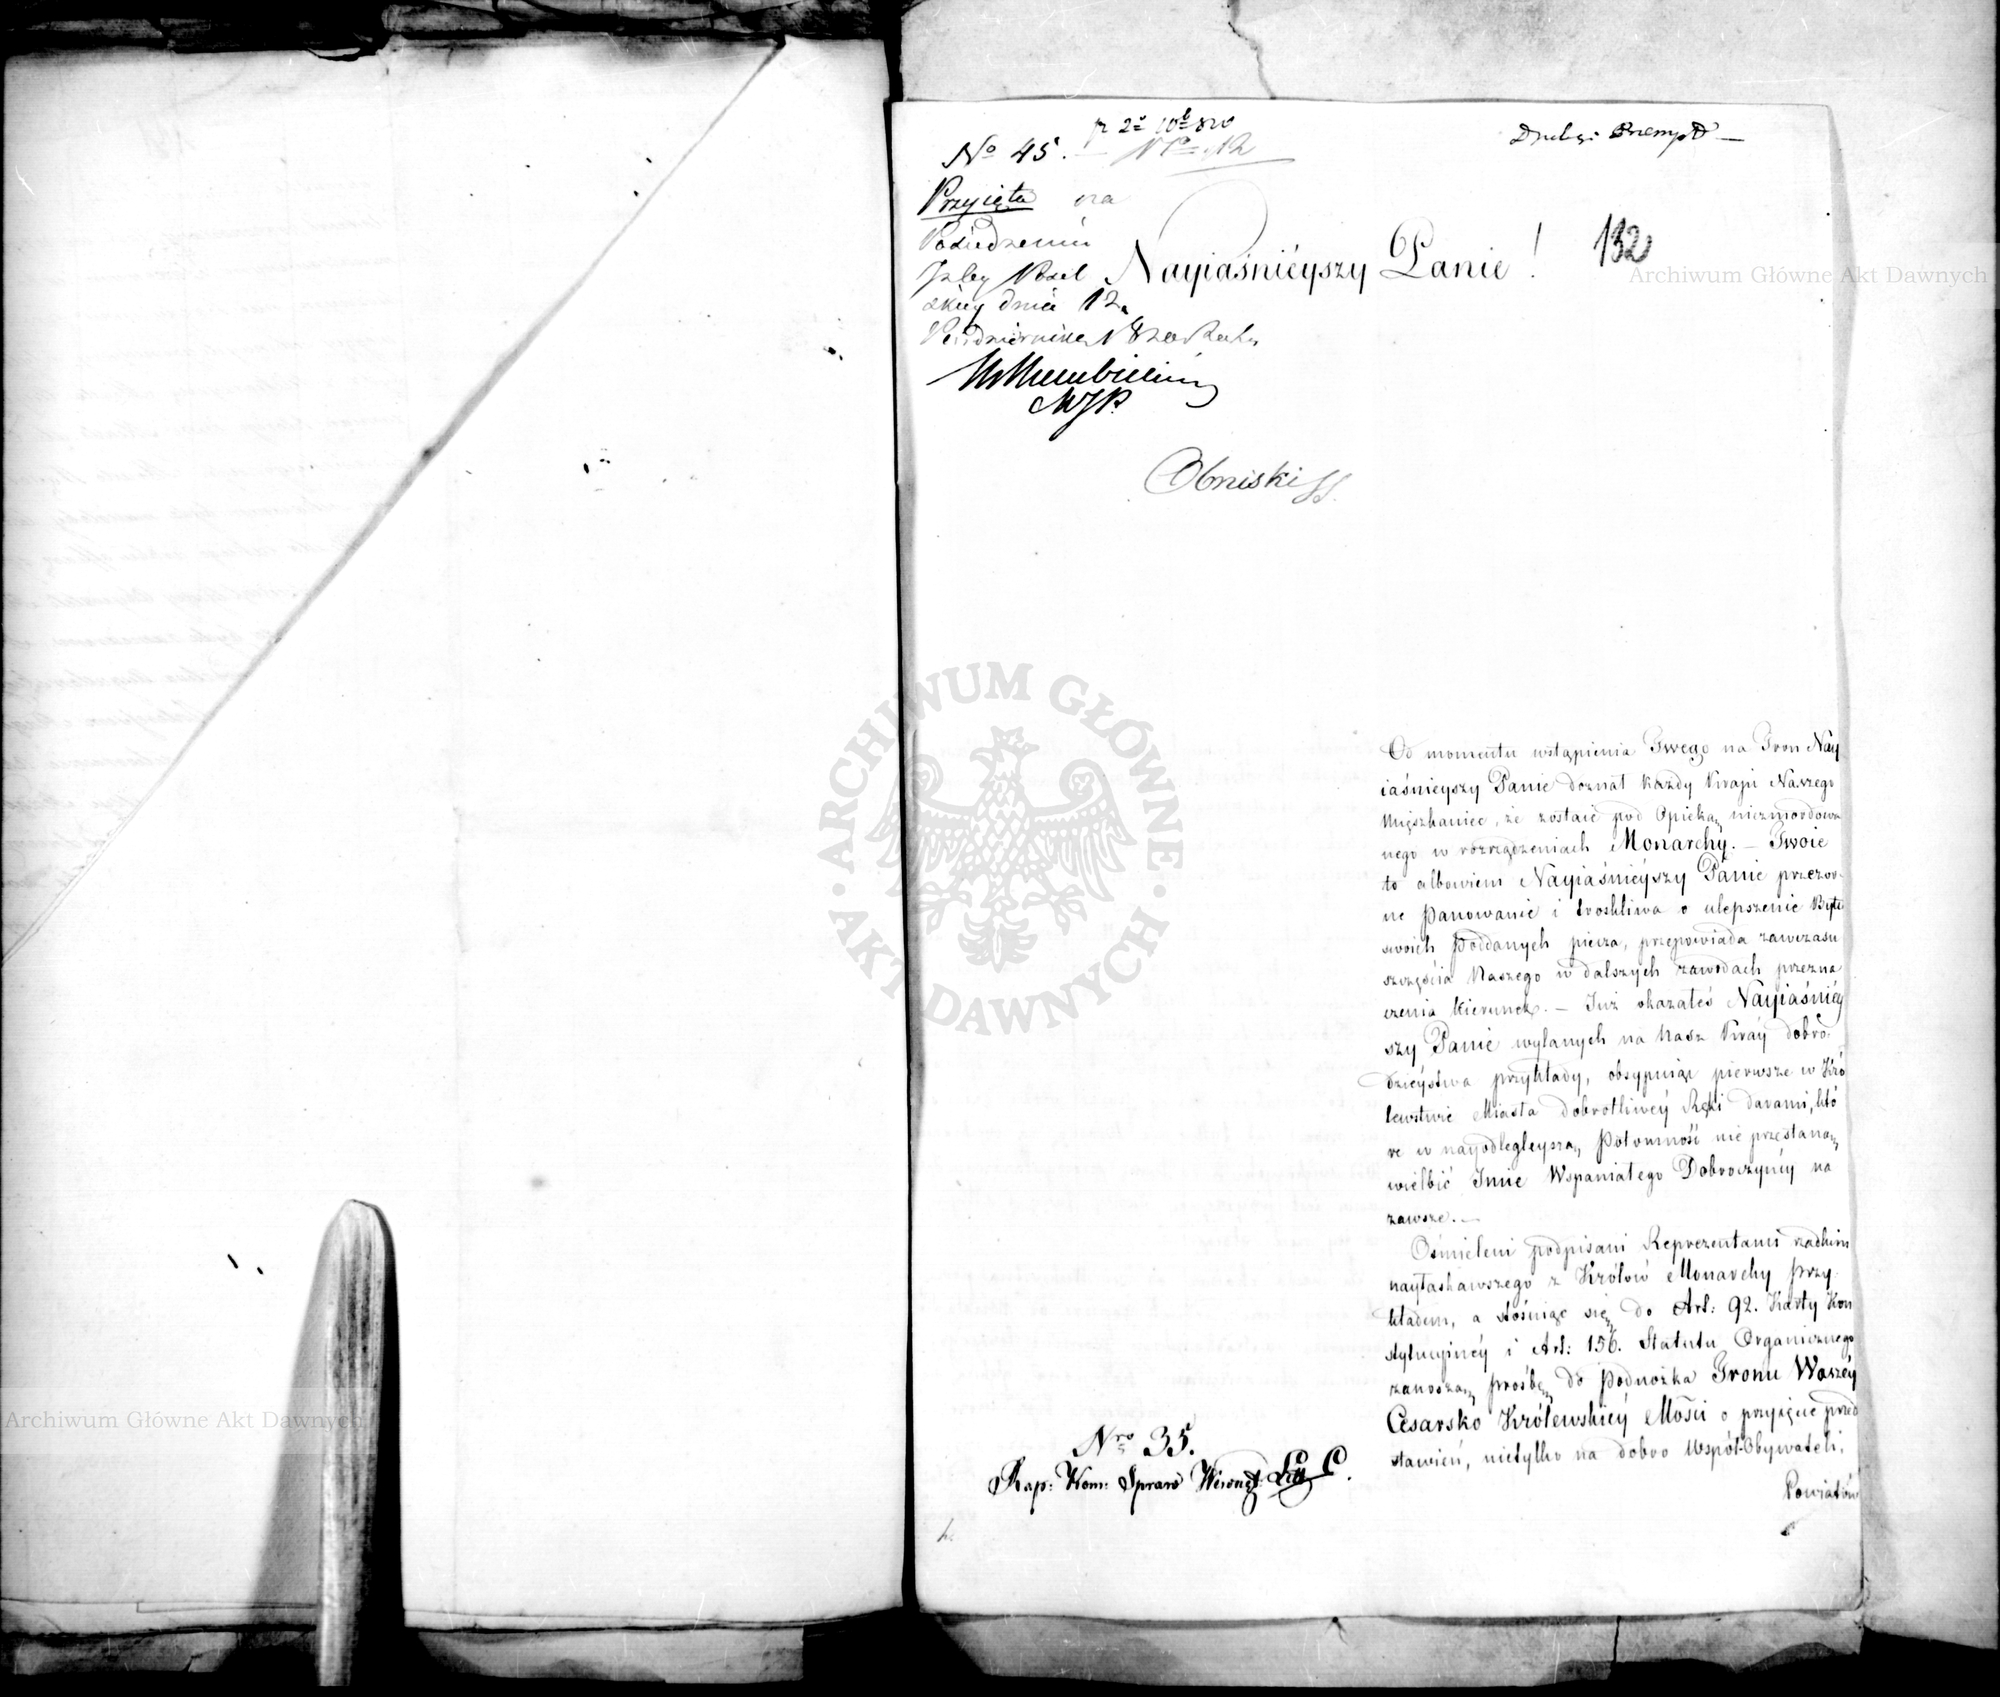 No 45.
Przyięta na
Posiedzeniu
Izby Posel
skiey dnia 12.
Października 1820 Roku
MJP.
Obniski
132
Nayiaśnićyszy Panie!
Od momentu wstąpienia Twego na Tron Nay
iaśnieyszy Panie doznał każdy Kraju Naszego
Mięszkaniec, że zostaie pod Opieką niezmordowa
nego w rozrządzeniach Monarchy. — Twoie
to albowiem Nayiaśnićyszy Panie przezor-
ne Panowanie i troskliwa o ulepszenie Bytu
swoich Poddanych piecza, przepowiada zawczasu
szczęścia Naszego w dalszych zawodach przezna
czenia Kierunek. — Już okazałeś Nayiaśnićy
szy Panie wylanych na Nasz Kray dobro-
dzieystwa przykłady, obsypuiąc pierwsze w Kró
lewstwie Miasta dobrotliwéy Ręki darami, któ
re w nayodlegleyszą Potomność nie przestaną
wielbić Imie Wspaniałego Dobroczyńcy na
zawsze. —
Ośmieleni podpisani Reprezentanci rzadkim
nayłaskawszego z Królów Monarchy Przy-
kładem, a stósuiąc się do Art: 92. Karty Kon
stytucyinéy i Art: 156. Statutu Organicznego
zanoszą prośbę do Podnóżka Tronu Waszéy
Cesarsko Królewskiéy Mości o przyięcie przed
stawień, nietylko na dobro Współ-Obywateli,
Powiatów
Nro 35.
Rap: Kom: Spraw Wewnęt: Lit C.
Archiwum Główne Akt Dawnych
ARCHIWUM GŁÓWNE
AKT DAWNYCH
Archiwum Główne Akt Dawnych